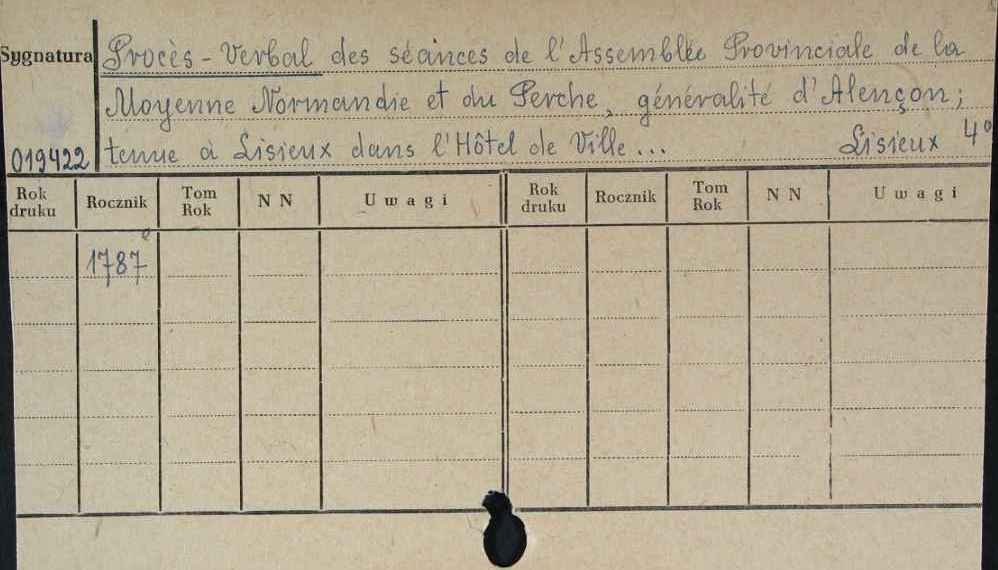 Sygnatura Procès-Verbal des séances de l'Assemblée Provinciale de la
Moyenne Normandie et du Perche, généralité d'Alençon;
019422 tenue à Lisieux dans l'Hôtel de Ville... Lisieux 4°
Rok druku Rocznik Tom Rok NN Uwagi Rok druku Rocznik Tom Rok NN Uwagi
1787